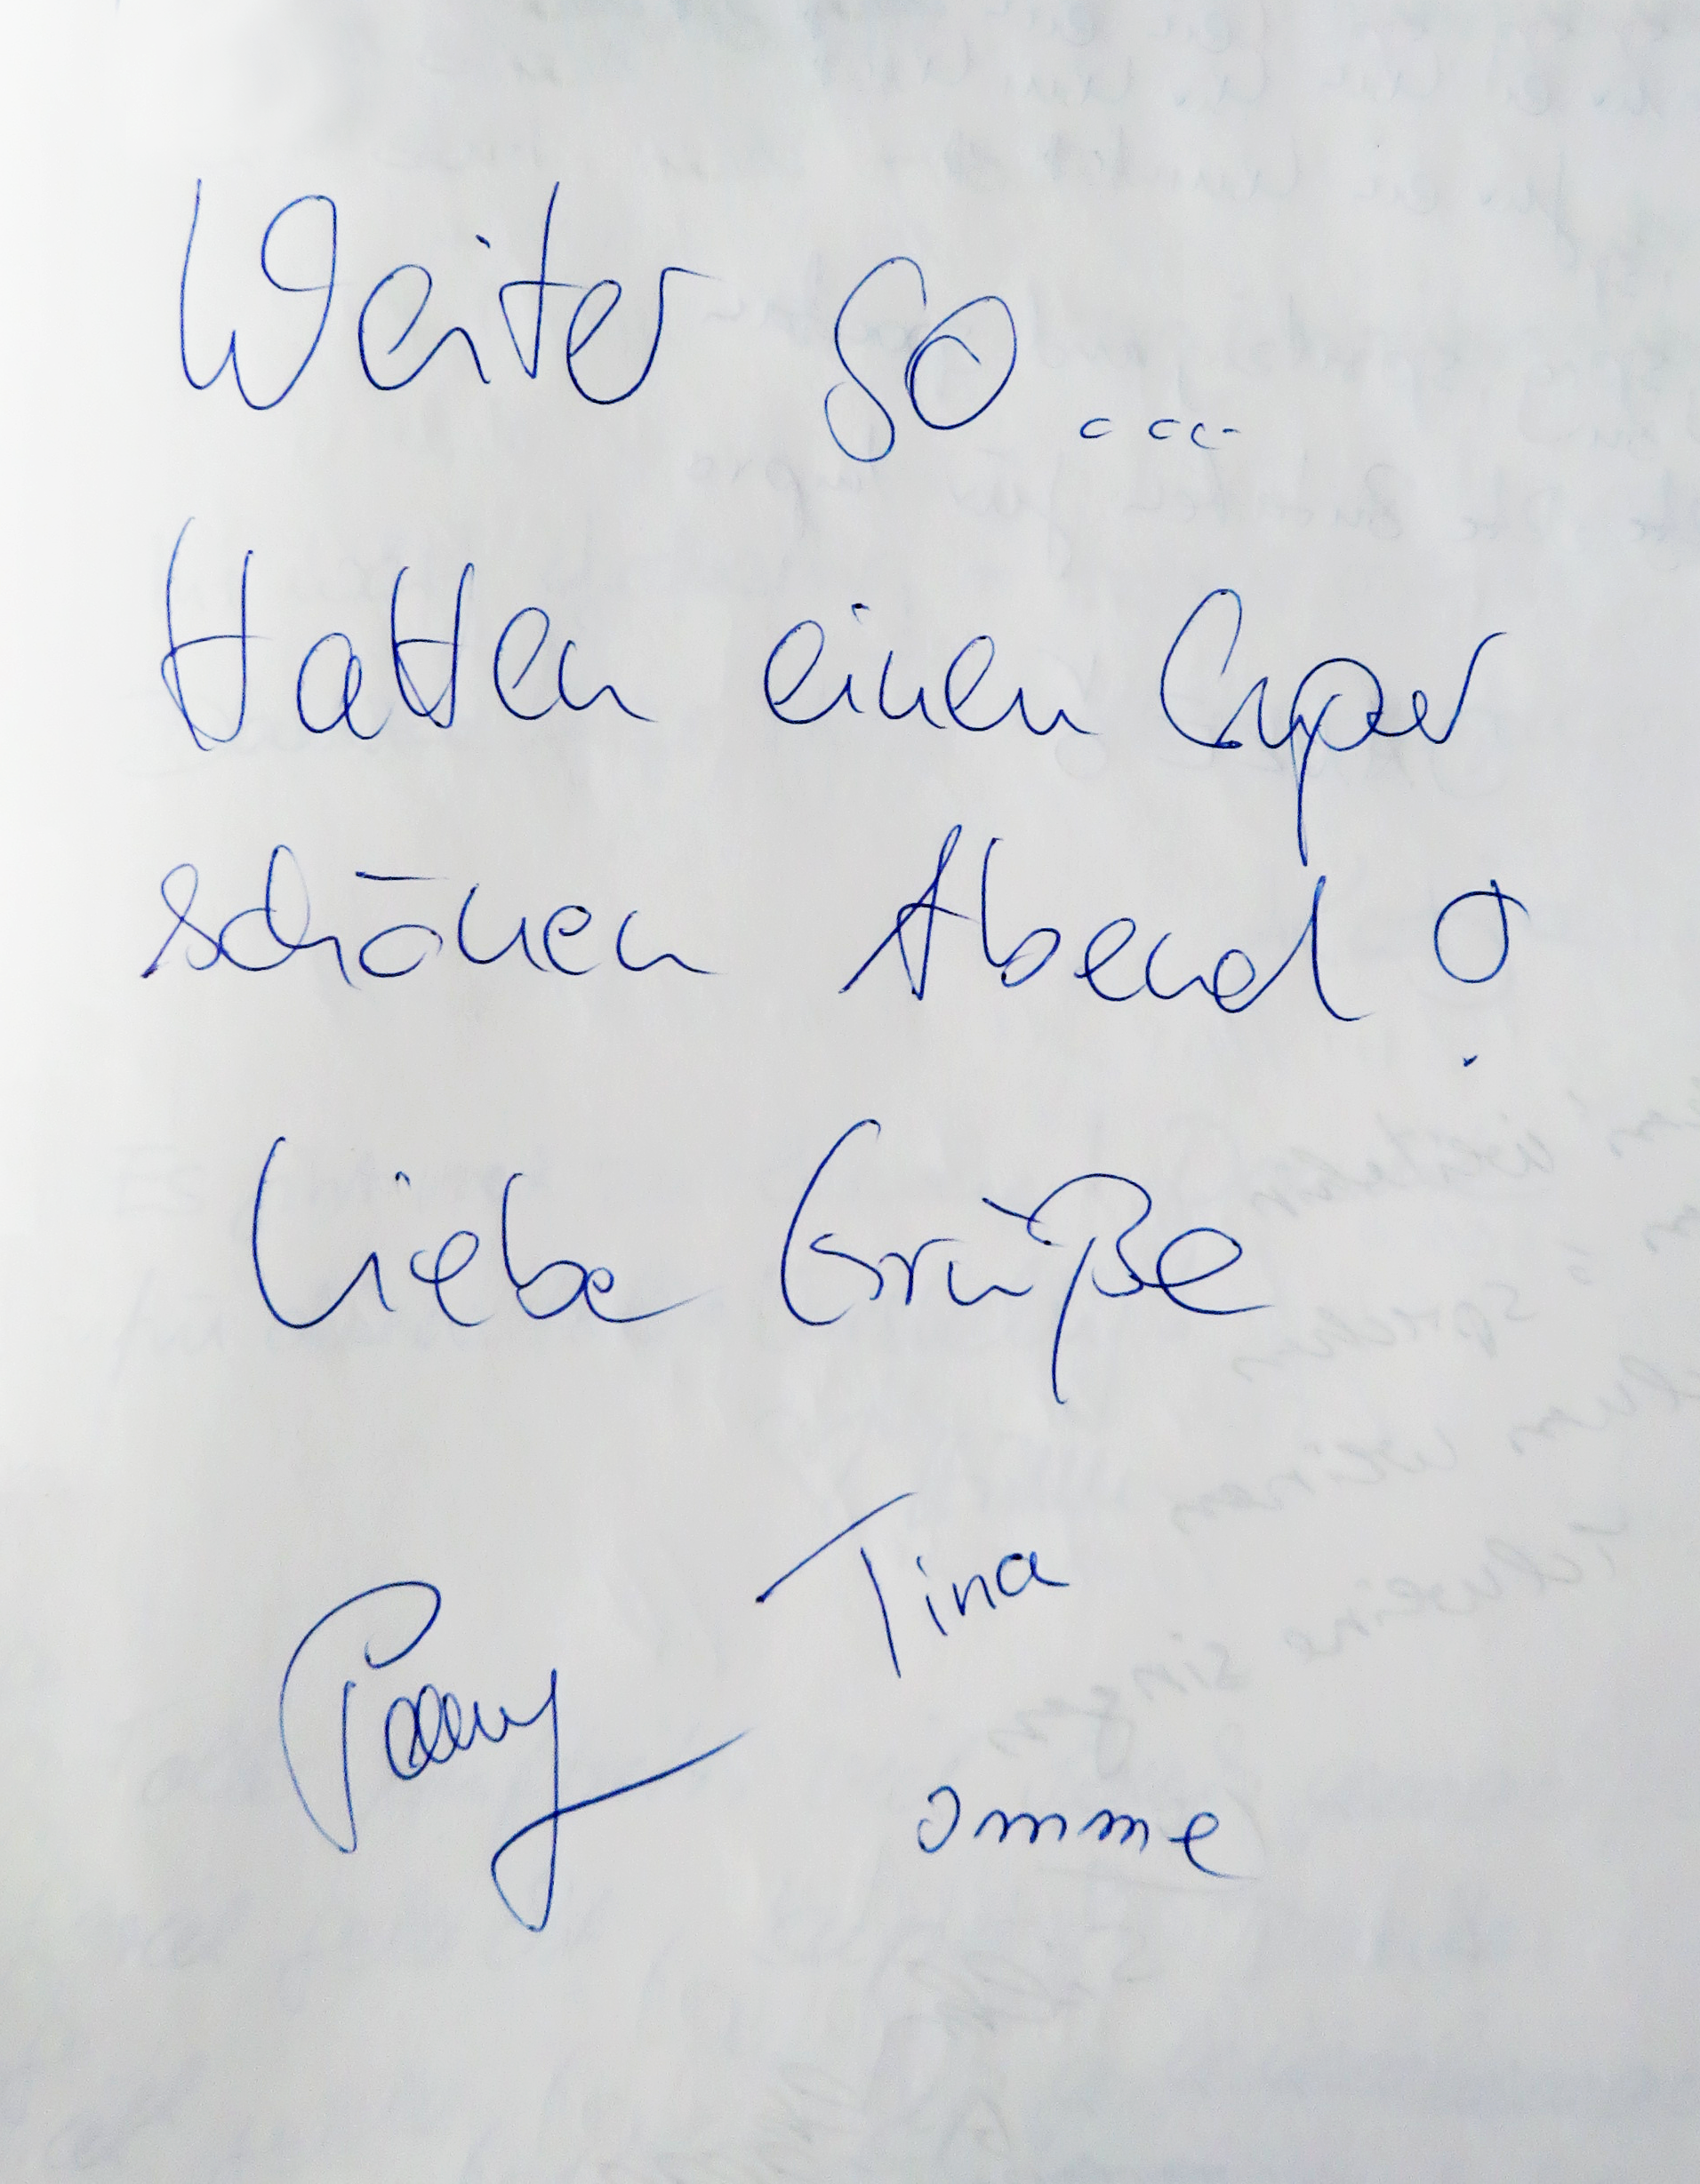 Weiter so...
Hatten einen super
schönen Abend!
Liebe Grüße
Tina
omme